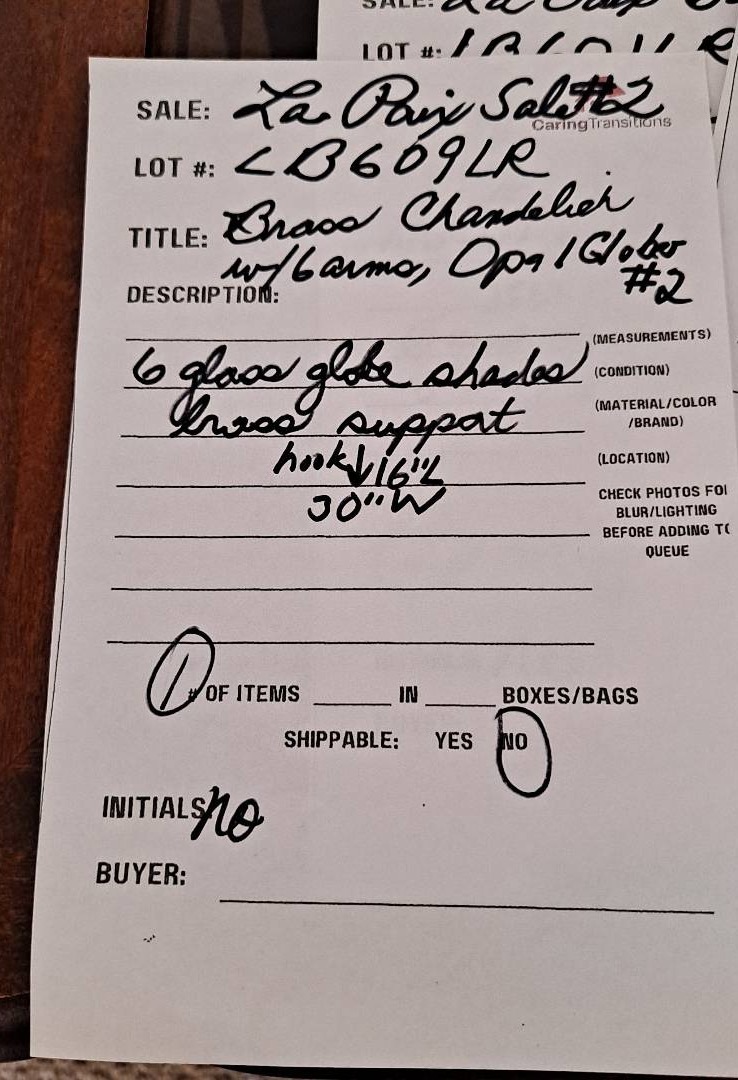 SALE: La
LOT #:
SALE: La Paix Sale #2
CaringTransitions
LOT #: LB609LR
TITLE: Brass Chandelier
w/6 arms, Opal Globes
#2
DESCRIPTION:
(MEASUREMENTS)
6 glass globe shades (CONDITION)
brass support (MATERIAL/COLOR
/BRAND)
hook↓16"L (LOCATION)
30"W CHECK PHOTOS FOR
BLUR/LIGHTING
BEFORE ADDING TO
QUEUE
1 # OF ITEMS ______ IN ______ BOXES/BAGS
SHIPPABLE: YES NO
INITIALS no
BUYER: